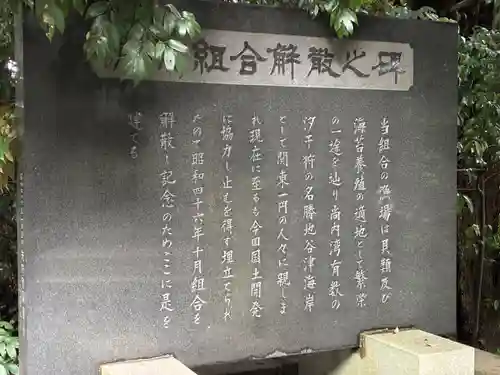 組合解散之碑
当組合の漁場は貝類及び
海苔養殖の適地として繁栄
の一途を辿り高内湾有数の
汐干狩の名勝地谷津海岸
として関東一円の人々に親しま
れ現在に至るも今回国土開発
に協力し止むを得ず埋立てられ
たので昭和四十六年十月組合を
解散し記念のためここに是を
建てる